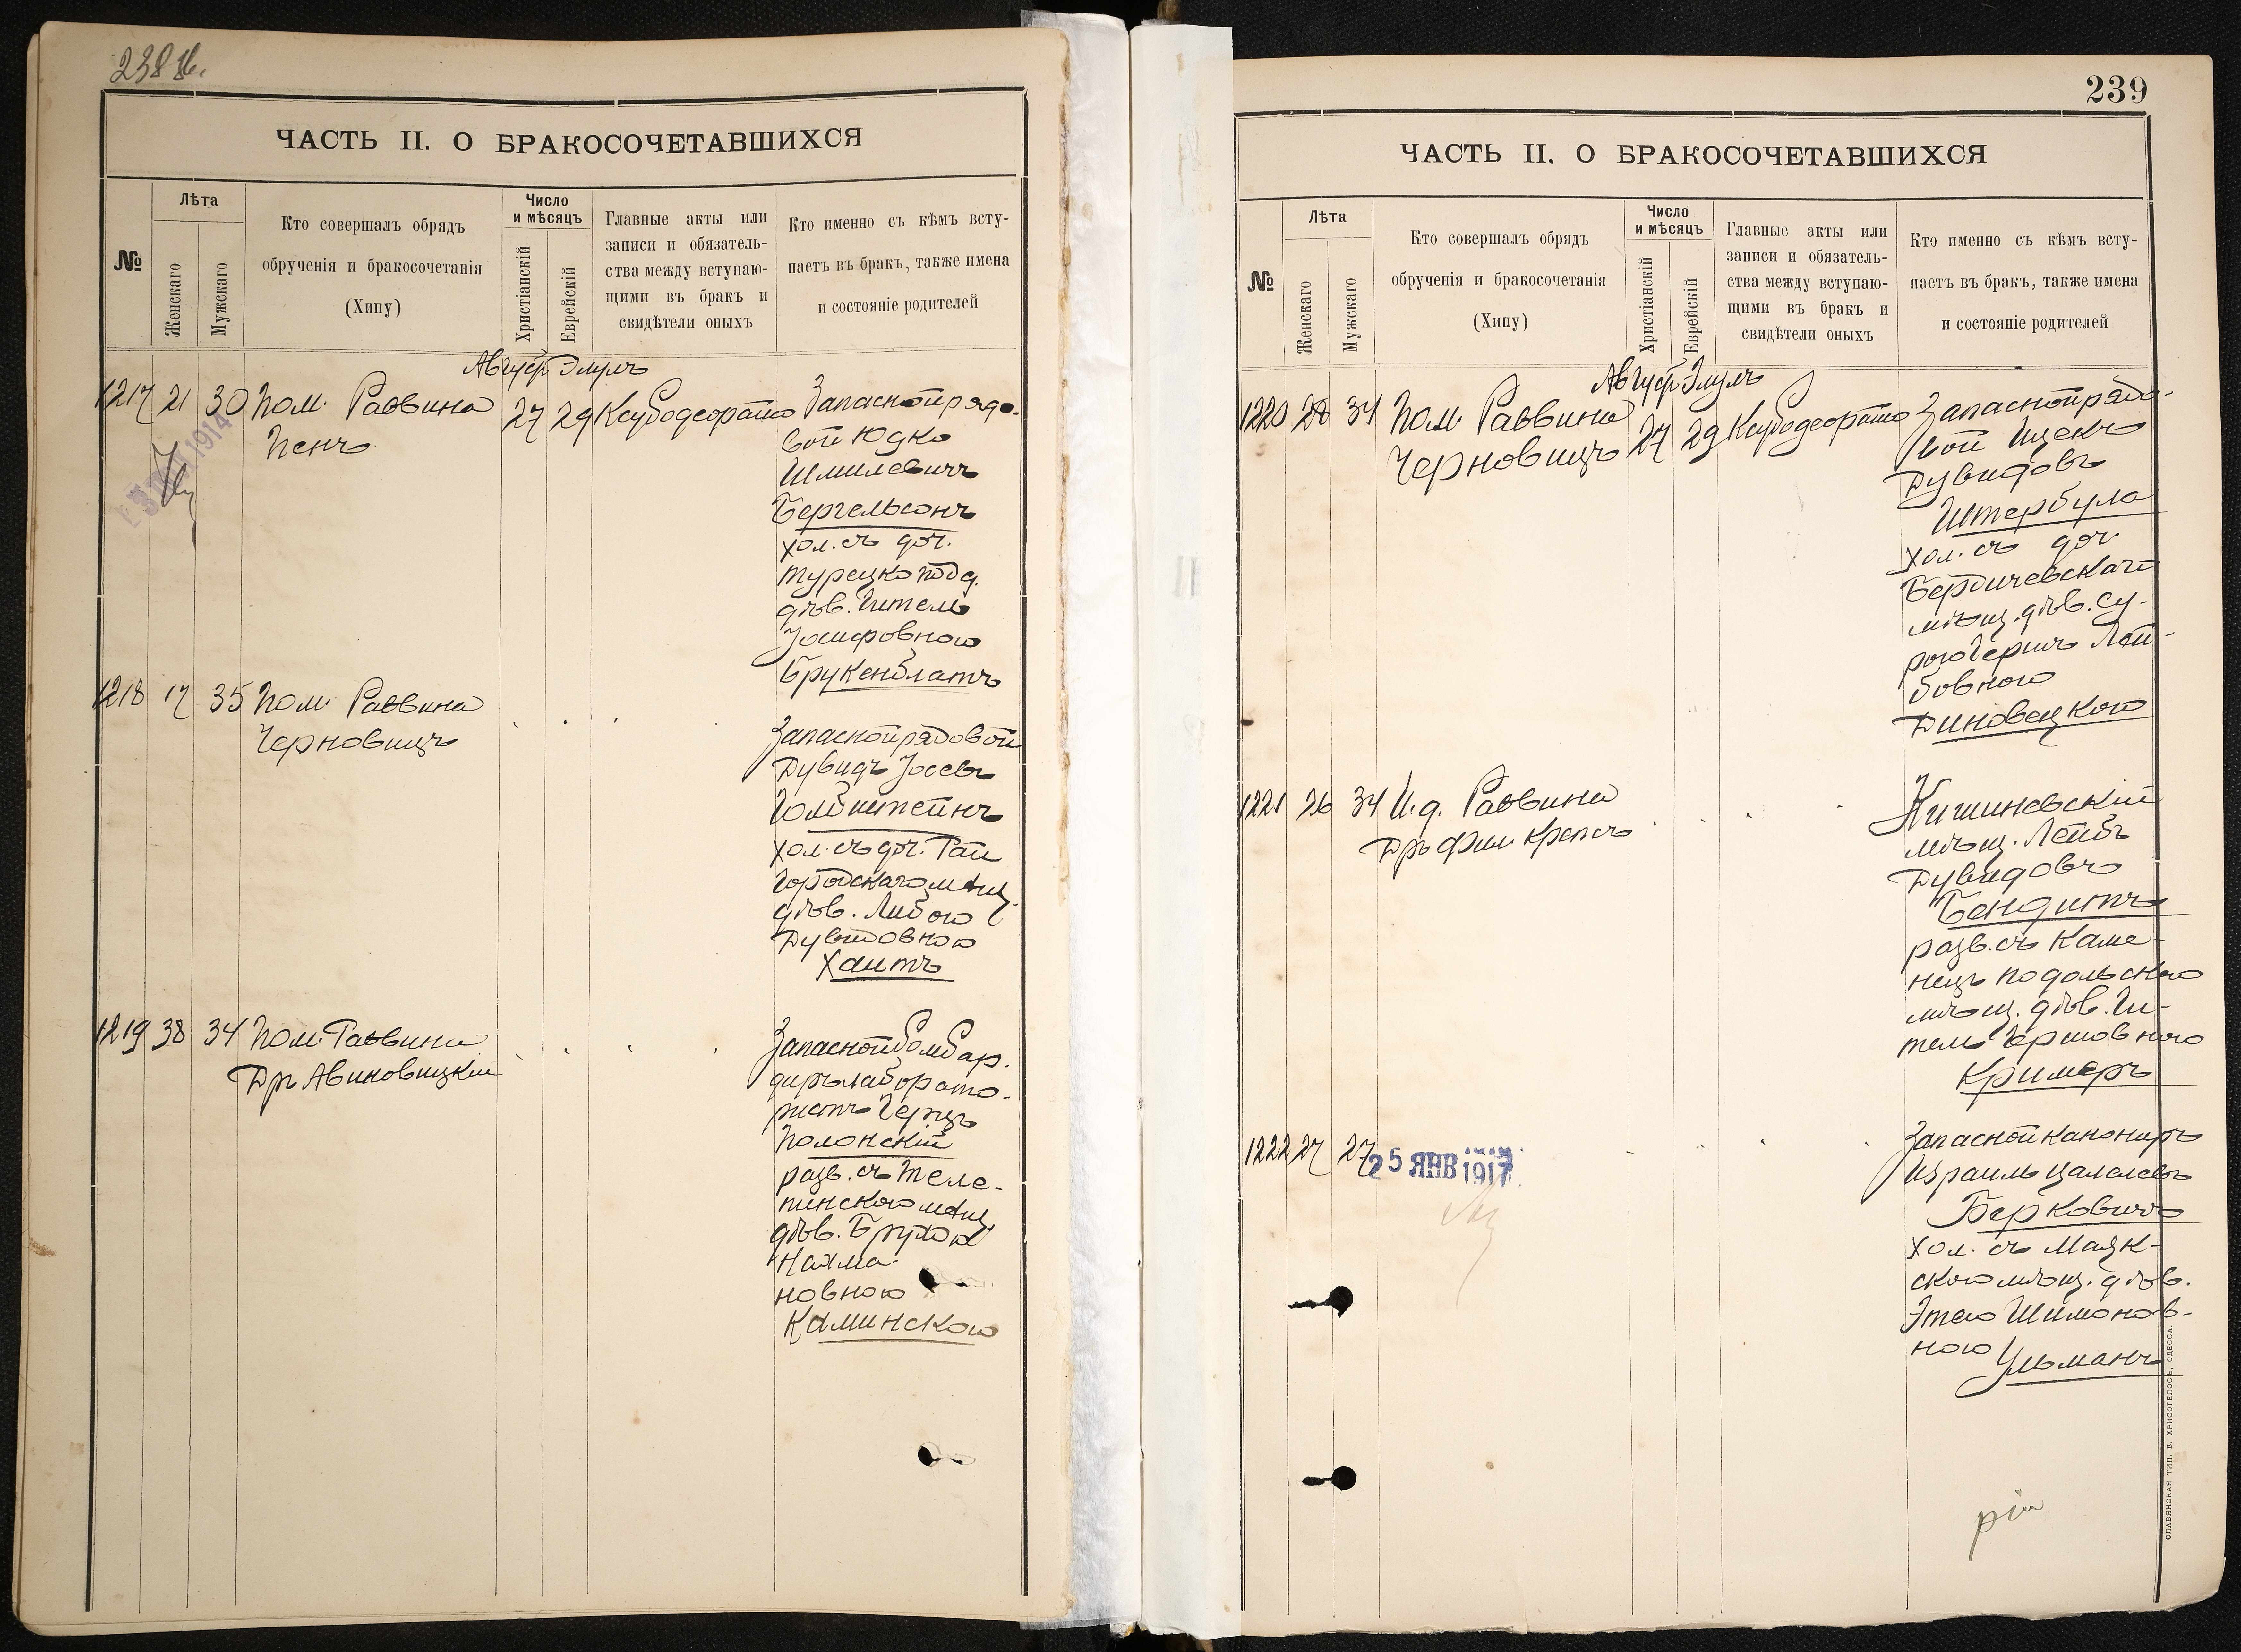 238 об.
ЧАСТЬ II. О БРАКОСОЧЕТАВШИХСЯ
№
Лѣта
Женскаго
Мужскаго
Кто совершалъ обрядъ
обрученія и бракосочетанія
(Хипу)
Число
и мѣсяцъ
Христіанскій
Еврейскій
Главные акты или
записи и обязатель-
ства между вступаю-
щими въ бракъ и
свидѣтели оныхъ
Кто именно съ кѣмъ всту-
паетъ въ бракъ, также имена
и состояніе родителей
Август Элулъ
1217 21 30 Пом. Раввина
Пенъ
27 29 Ксубодеорато
Запасной рядо-
вой Юдко
Шмилевичъ
Бергельсонъ
хол. съ доч.
турецко подд.
дѣв. Гителъ
Іосифовною
Брукенблатъ
1218 17 35 Пом. Раввина
Черновицъ
Запасной рядовой
Дувидъ Іосевъ
Голбштейнъ
хол. съ доч. Рай
городскаго мѣщ.
дѣв. Либою
Дувидовною
Хаитъ
1219 38 34 Пом. Раввина
Дръ Авиновицкій
Запасной бомбар-
диръ лаборато-
ристъ Герцъ
Полонскій
разв. съ Теле-
пинскою мѣщ.
дѣв. Брухой
Нахма-
новною
Каминскою
239
ЧАСТЬ II. О БРАКОСОЧЕТАВШИХСЯ
№
Лѣта
Женскаго
Мужскаго
Кто совершалъ обрядъ
обрученія и бракосочетанія
(Хипу)
Число
и мѣсяцъ
Христіанскій
Еврейскій
Главные акты или
записи и обязатель-
ства между вступаю-
щими въ бракъ и
свидѣтели оныхъ
Кто именно съ кѣмъ всту-
паетъ въ бракъ, также имена
и состояніе родителей
Август Элулъ
1220 28 34 Пом. Раввина
Черновицъ
27 29 Ксубодеорато
Запасной рядо-
вой Ицекъ
Дувидовъ
Штербула
хол. съ доч.
Бердичевскаго
мѣщ. дѣв. Су-
рою Герш Лей-
бовною
Диновецкою
1221 26 34 И. д. Раввина
Дръ Фил. Крепсъ
Кишиневскій
мѣщ. Лейбъ
Дувидовъ
Бендитъ
разв. съ Каме-
нецъ подольскою
мѣщ. дѣв. Ги-
телъ Гершовною
Кримеръ
1222 27 27
25 ЯНВ 1917
Запасной канониръ
Израиль Цалелевъ
Берковичъ
хол. съ Маяк-
скою мѣщ. дѣв.
Этею Шимонов-
ною
Ульманъ
СЛАВЯНСКАЯ ТИП. Е. ХРИСОГЕЛОСЪ, ОДЕССА.